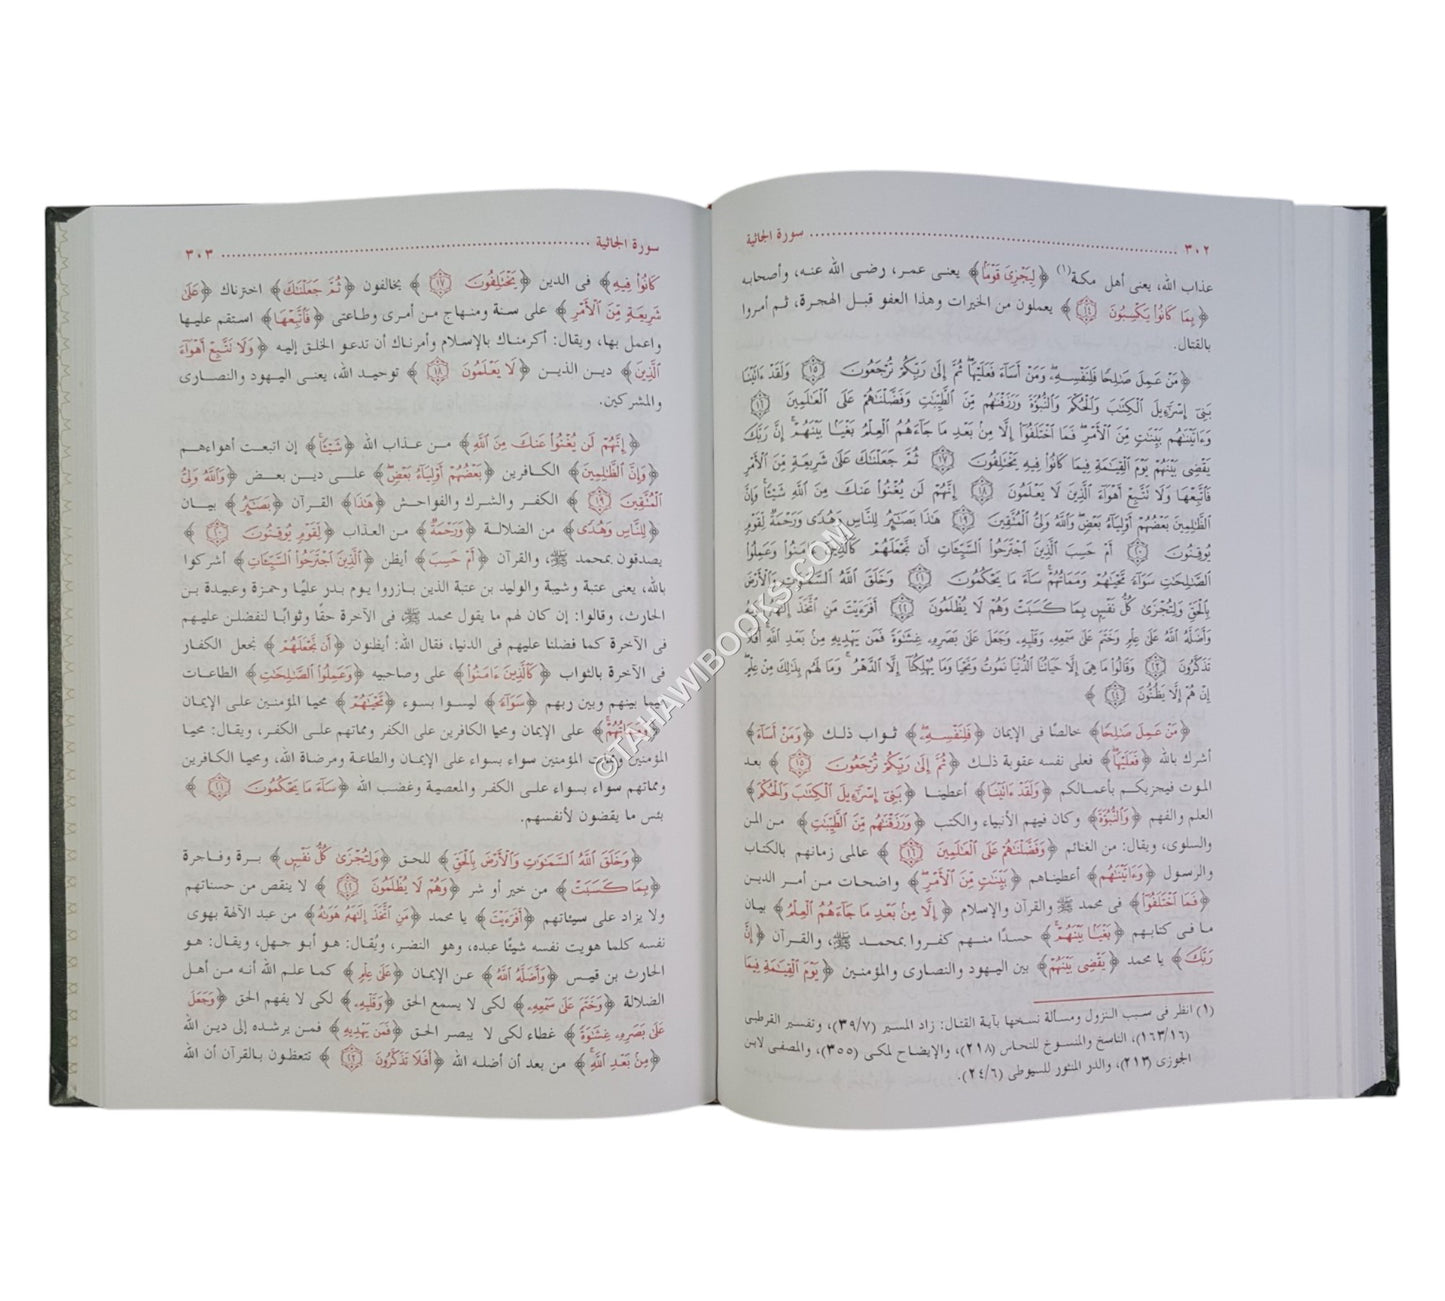 ٣٠٢ ........ سورة الجاثية
عذاب الله، يعنى أهل مكة(١) ﴿لِيَجْزِيَ قَوْمًا﴾ يعنى عمر، رضى الله عنه، وأصحابه
﴿بِمَا كَانُوا۟ يَكْسِبُونَ ١٤﴾ يعملون من الخيرات وهذا العفو قبل الهجرة، ثم أمروا
بالقتال.
﴿مَنْ عَمِلَ صَٰلِحًا فَلِنَفْسِهِۦ وَمَنْ أَسَآءَ فَعَلَيْهَا ثُمَّ إِلَىٰ رَبِّكُمْ تُرْجَعُونَ ١٥ وَلَقَدْ ءَاتَيْنَا
بَنِىٓ إِسْرَٰٓءِيلَ ٱلْكِتَٰبَ وَٱلْحُكْمَ وَٱلنُّبُوَّةَ وَرَزَقْنَٰهُم مِّنَ ٱلطَّيِّبَٰتِ وَفَضَّلْنَٰهُمْ عَلَى ٱلْعَٰلَمِينَ ١٦
وَءَاتَيْنَٰهُم بَيِّنَٰتٍ مِّنَ ٱلْأَمْرِ فَمَا ٱخْتَلَفُوٓا۟ إِلَّا مِنۢ بَعْدِ مَا جَآءَهُمُ ٱلْعِلْمُ بَغْيًۢا بَيْنَهُمْ إِنَّ رَبَّكَ
يَقْضِى بَيْنَهُمْ يَوْمَ ٱلْقِيَٰمَةِ فِيمَا كَانُوا۟ فِيهِ يَخْتَلِفُونَ ١٧ ثُمَّ جَعَلْنَٰكَ عَلَىٰ شَرِيعَةٍ مِّنَ ٱلْأَمْرِ
فَٱتَّبِعْهَا وَلَا تَتَّبِعْ أَهْوَآءَ ٱلَّذِينَ لَا يَعْلَمُونَ ١٨ إِنَّهُمْ لَن يُغْنُوا۟ عَنكَ مِنَ ٱللَّهِ شَيْـًٔا وَإِنَّ
ٱلظَّٰلِمِينَ بَعْضُهُمْ أَوْلِيَآءُ بَعْضٍ وَٱللَّهُ وَلِىُّ ٱلْمُتَّقِينَ ١٩ هَٰذَا بَصَٰٓئِرُ لِلنَّاسِ وَهُدًى وَرَحْمَةٌ لِّقَوْمٍ
يُوقِنُونَ ٢٠ أَمْ حَسِبَ ٱلَّذِينَ ٱجْتَرَحُوا۟ ٱلسَّيِّـَٔاتِ أَن نَّجْعَلَهُمْ كَٱلَّذِينَ ءَامَنُوا۟ وَعَمِلُوا۟
ٱلصَّٰلِحَٰتِ سَوَآءً مَّحْيَاهُمْ وَمَمَاتُهُمْ سَآءَ مَا يَحْكُمُونَ ٢١ وَخَلَقَ ٱللَّهُ ٱلسَّمَٰوَٰتِ وَٱلْأَرْضَ
بِٱلْحَقِّ وَلِتُجْزَىٰ كُلُّ نَفْسٍۭ بِمَا كَسَبَتْ وَهُمْ لَا يُظْلَمُونَ ٢٢ أَفَرَءَيْتَ مَنِ ٱتَّخَذَ إِلَٰهَهُۥ هَوَىٰهُ
وَأَضَلَّهُ ٱللَّهُ عَلَىٰ عِلْمٍ وَخَتَمَ عَلَىٰ سَمْعِهِۦ وَقَلْبِهِۦ وَجَعَلَ عَلَىٰ بَصَرِهِۦ غِشَٰوَةً فَمَن يَهْدِيهِ مِنۢ بَعْدِ ٱللَّهِ أَفَلَا
تَذَكَّرُونَ ٢٣ وَقَالُوا۟ مَا هِىَ إِلَّا حَيَاتُنَا ٱلدُّنْيَا نَمُوتُ وَنَحْيَا وَمَا يُهْلِكُنَآ إِلَّا ٱلدَّهْرُ وَمَا لَهُم بِذَٰلِكَ مِنْ عِلْمٍ
إِنْ هُمْ إِلَّا يَظُنُّونَ ٢٤﴾
﴿مَنْ عَمِلَ صَٰلِحًا﴾ خالصًا فى الإيمان ﴿فَلِنَفْسِهِۦ﴾ ثواب ذلك ﴿وَمَنْ أَسَآءَ﴾
أشرك بالله ﴿فَعَلَيْهَا﴾ فعلى نفسه عقوبة ذلك ﴿ثُمَّ إِلَىٰ رَبِّكُمْ تُرْجَعُونَ ١٥﴾ بعد
الموت فيجزيكم بأعمالكم ﴿وَلَقَدْ ءَاتَيْنَا﴾ أعطينا ﴿بَنِىٓ إِسْرَٰٓءِيلَ ٱلْكِتَٰبَ وَٱلْحُكْمَ﴾
العلم والفهم ﴿وَٱلنُّبُوَّةَ﴾ وكان فيهم الأنبياء والكتب ﴿وَرَزَقْنَٰهُم مِّنَ ٱلطَّيِّبَٰتِ﴾ من المن
والسلوى، ويقال: من الغنائم ﴿وَفَضَّلْنَٰهُمْ عَلَى ٱلْعَٰلَمِينَ ١٦﴾ عالمى زمانهم بالكتاب
والرسول ﴿وَءَاتَيْنَٰهُم﴾ أعطيناهم ﴿بَيِّنَٰتٍ مِّنَ ٱلْأَمْرِ﴾ واضحات من أمر الدين
﴿فَمَا ٱخْتَلَفُوٓا۟﴾ فى محمد ﷺ والقرآن والإسلام ﴿إِلَّا مِنۢ بَعْدِ مَا جَآءَهُمُ ٱلْعِلْمُ﴾ بيان
ما فى كتابهم ﴿بَغْيًۢا بَيْنَهُمْ﴾ حسدًا منهم كفروا بمحمد ﷺ، والقرآن ﴿إِنَّ
رَبَّكَ﴾ يا محمد ﴿يَقْضِى بَيْنَهُمْ﴾ بين اليهود والنصارى والمؤمنين ﴿يَوْمَ ٱلْقِيَٰمَةِ فِيمَا
(١) انظر فى سبب النزول ومسألة نسخها بآية القتال: زاد المسير (٣٩/٧)، وتفسير القرطبى
(١٦٣/١٦)، الناسخ والمنسوخ للنحاس (٢١٨)، والإيضاح لمكى (٣٥٥)، والمصفى لابن
الجوزى (٢١٣)، والدر المنثور للسيوطى (٢٤/٦).
سورة الجاثية ........ ٣٠٣
كَانُوا۟ فِيهِ﴾ فى الدين ﴿يَخْتَلِفُونَ ١٧﴾ يخالفون ﴿ثُمَّ جَعَلْنَٰكَ﴾ اخترناك ﴿عَلَىٰ
شَرِيعَةٍ مِّنَ ٱلْأَمْرِ﴾ على سنة ومنهاج من أمرى وطاعتى ﴿فَٱتَّبِعْهَا﴾ استقم عليها
واعمل بها، ويقال: أكرمناك بالإسلام وأمرناك أن تدعو الخلق إليه ﴿وَلَا تَتَّبِعْ أَهْوَآءَ
ٱلَّذِينَ﴾ دين الذين ﴿لَا يَعْلَمُونَ ١٨﴾ توحيد الله، يعنى اليهود والنصارى
والمشركين.
﴿إِنَّهُمْ لَن يُغْنُوا۟ عَنكَ مِنَ ٱللَّهِ﴾ من عذاب الله ﴿شَيْـًٔا﴾ إن اتبعت أهواءهم
﴿وَإِنَّ ٱلظَّٰلِمِينَ﴾ الكافرين ﴿بَعْضُهُمْ أَوْلِيَآءُ بَعْضٍ﴾ على دين بعض ﴿وَٱللَّهُ وَلِىُّ
ٱلْمُتَّقِينَ ١٩﴾ الكفر والشرك والفواحش ﴿هَٰذَا﴾ القرآن ﴿بَصَٰٓئِرُ﴾ بيان
﴿لِلنَّاسِ وَهُدًى﴾ من الضلالة ﴿وَرَحْمَةٌ﴾ من العذاب ﴿لِّقَوْمٍ يُوقِنُونَ ٢٠﴾
يصدقون بمحمد ﷺ، والقرآن ﴿أَمْ حَسِبَ﴾ أيظن ﴿ٱلَّذِينَ ٱجْتَرَحُوا۟ ٱلسَّيِّـَٔاتِ﴾ أشركوا
بالله، يعنى عتبة وشيبة والوليد بن عتبة الذين بارزوا يوم بدر عليًا وحمزة وعبيدة بن
الحارث، وقالوا: إن كان لهم ما يقول محمد ﷺ، فى الآخرة حقًا وثوابًا لنفضلن عليهم
فى الآخرة كما فضلنا عليهم فى الدنيا، فقال الله: أيظنون ﴿أَن نَّجْعَلَهُمْ﴾ نجعل الكفار
فى الآخرة بالثواب ﴿كَٱلَّذِينَ ءَامَنُوا۟﴾ على وصاحبيه ﴿وَعَمِلُوا۟ ٱلصَّٰلِحَٰتِ﴾ الطاعات
فيما بينهم وبين ربهم ﴿سَوَآءً﴾ ليسوا بسوء ﴿مَّحْيَاهُمْ﴾ محيا المؤمنين على الإيمان
﴿وَمَمَاتُهُمْ﴾ على الإيمان ومحيا الكافرين على الكفر ومماتهم على الكفر، ويقال: محيا
المؤمنين وممات المؤمنين سواء بسواء على الإيمان والطاعة ومرضاة الله، ومحيا الكافرين
ومماتهم سواء بسواء على الكفر والمعصية وغضب الله ﴿سَآءَ مَا يَحْكُمُونَ ٢١﴾
بئس ما يقضون لأنفسهم.
﴿وَخَلَقَ ٱللَّهُ ٱلسَّمَٰوَٰتِ وَٱلْأَرْضَ بِٱلْحَقِّ﴾ للحق ﴿وَلِتُجْزَىٰ كُلُّ نَفْسٍۭ﴾ برة وفاجرة
﴿بِمَا كَسَبَتْ﴾ من خير أو شر ﴿وَهُمْ لَا يُظْلَمُونَ ٢٢﴾ لا ينقص من حسناتهم
ولا يزاد على سيئاتهم ﴿أَفَرَءَيْتَ﴾ يا محمد ﴿مَنِ ٱتَّخَذَ إِلَٰهَهُۥ هَوَىٰهُ﴾ من عبد الآلهة بهوى
نفسه كلما هويت نفسه شيئًا عبده، وهو النضر، ويُقال: هو أبو جهل، ويقال: هو
الحارث بن قيس ﴿وَأَضَلَّهُ ٱللَّهُ﴾ عن الإيمان ﴿عَلَىٰ عِلْمٍ﴾ كما علم الله أنه من أهل
الضلالة ﴿وَخَتَمَ عَلَىٰ سَمْعِهِۦ﴾ لكى لا يسمع الحق ﴿وَقَلْبِهِۦ﴾ لكى لا يفهم الحق ﴿وَجَعَلَ
عَلَىٰ بَصَرِهِۦ غِشَٰوَةً﴾ غطاء لكى لا يبصر الحق ﴿فَمَن يَهْدِيهِ﴾ فمن يرشده إلى دين الله
﴿مِنۢ بَعْدِ ٱللَّهِ﴾ من بعد أن أضله الله ﴿أَفَلَا تَذَكَّرُونَ ٢٣﴾ تتعظون بالقرآن أن الله
©TAHAWIBOOKS.COM